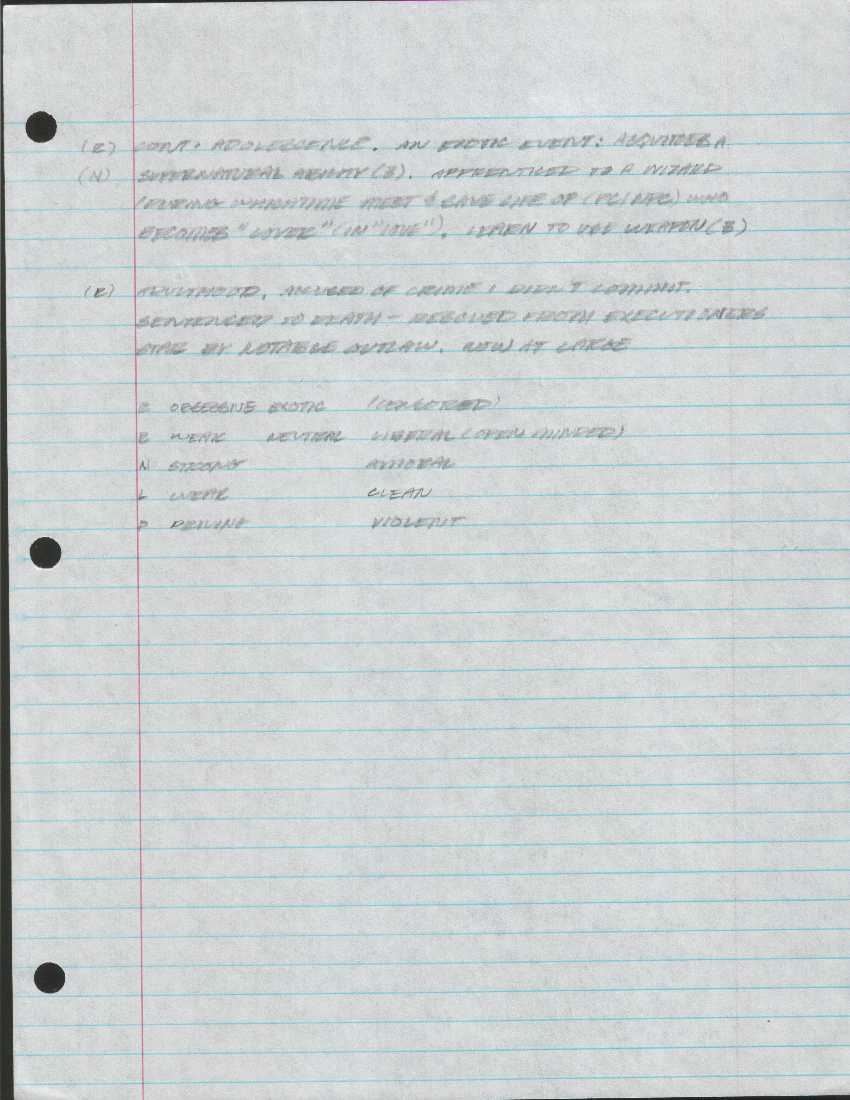 (E) CONT. ADOLESCENCE. AN EXOTIC EVENT: ACQUIRES A
(N) SUPERNATURAL ABILITY (3). APPRENTICED TO A WIZARD
(DURING WHICH TIME MEET & SAVE LIFE OF (PC/NPC) WHO
BECOMES "LOVER" (IN "LOVE"). LEARN TO USE WEAPON (3)
ADULTHOOD. ACCUSED OF CRIME I DIDN'T COMMIT.
SENTENCED TO DEATH - RESCUED FROM EXECUTIONERS
BY NOTABLE OUTLAW. NOW AT LARGE
OBSESSIVE EXOTIC (CENSORED)
WEAK NEUTRAL LIBERAL (OPEN MINDED)
N STRONG AMORAL
L WEAK CLEAN
D DRIVING VIOLENT